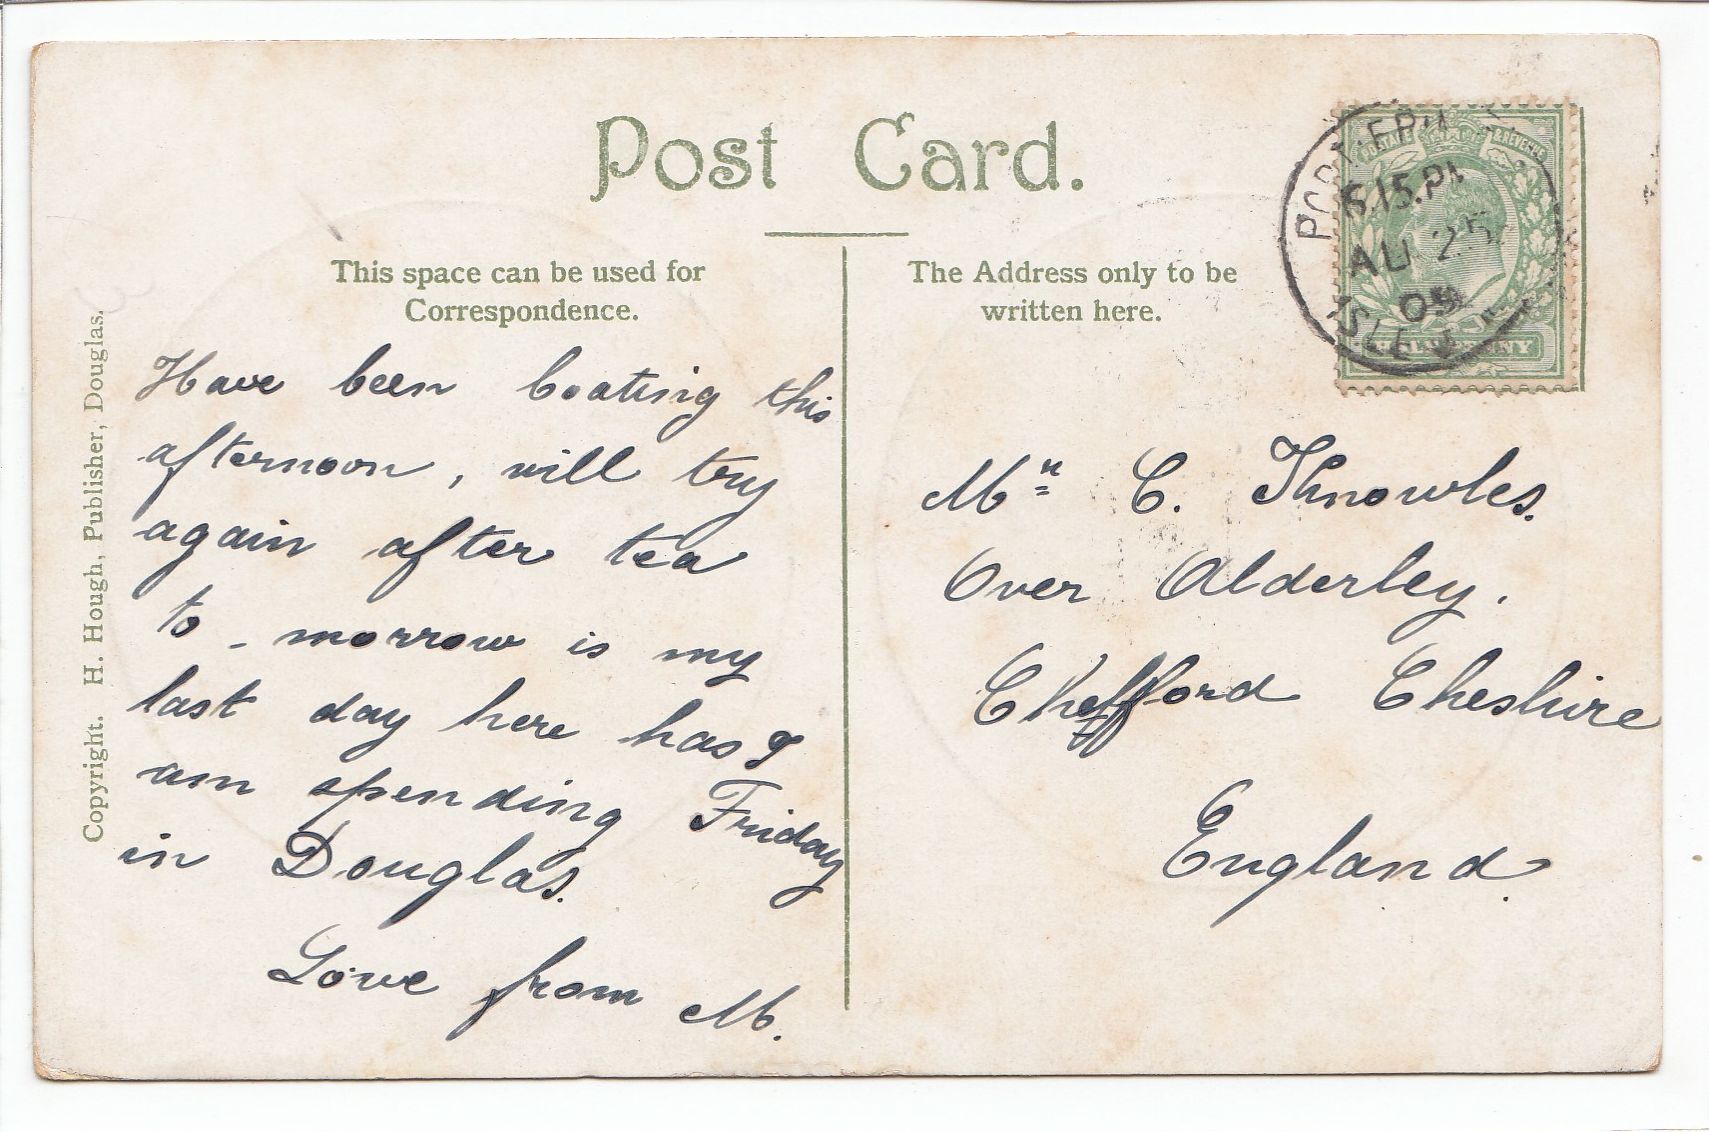 Post Card.
This space can be used for
Correspondence.
The Address only to be
written here.
Copyright. H. Hough, Publisher, Douglas.
Have been boating this
afternoon, will try
again after tea
to-morrow is my
last day here has I
am spending Friday
in Douglas.
Love from M.
Mr C. Knowles.
Over Alderley.
Chefford Cheshire
England.
PORT ERIN
6.15.PM
AU 25
09
ISLE
HALFPENNY